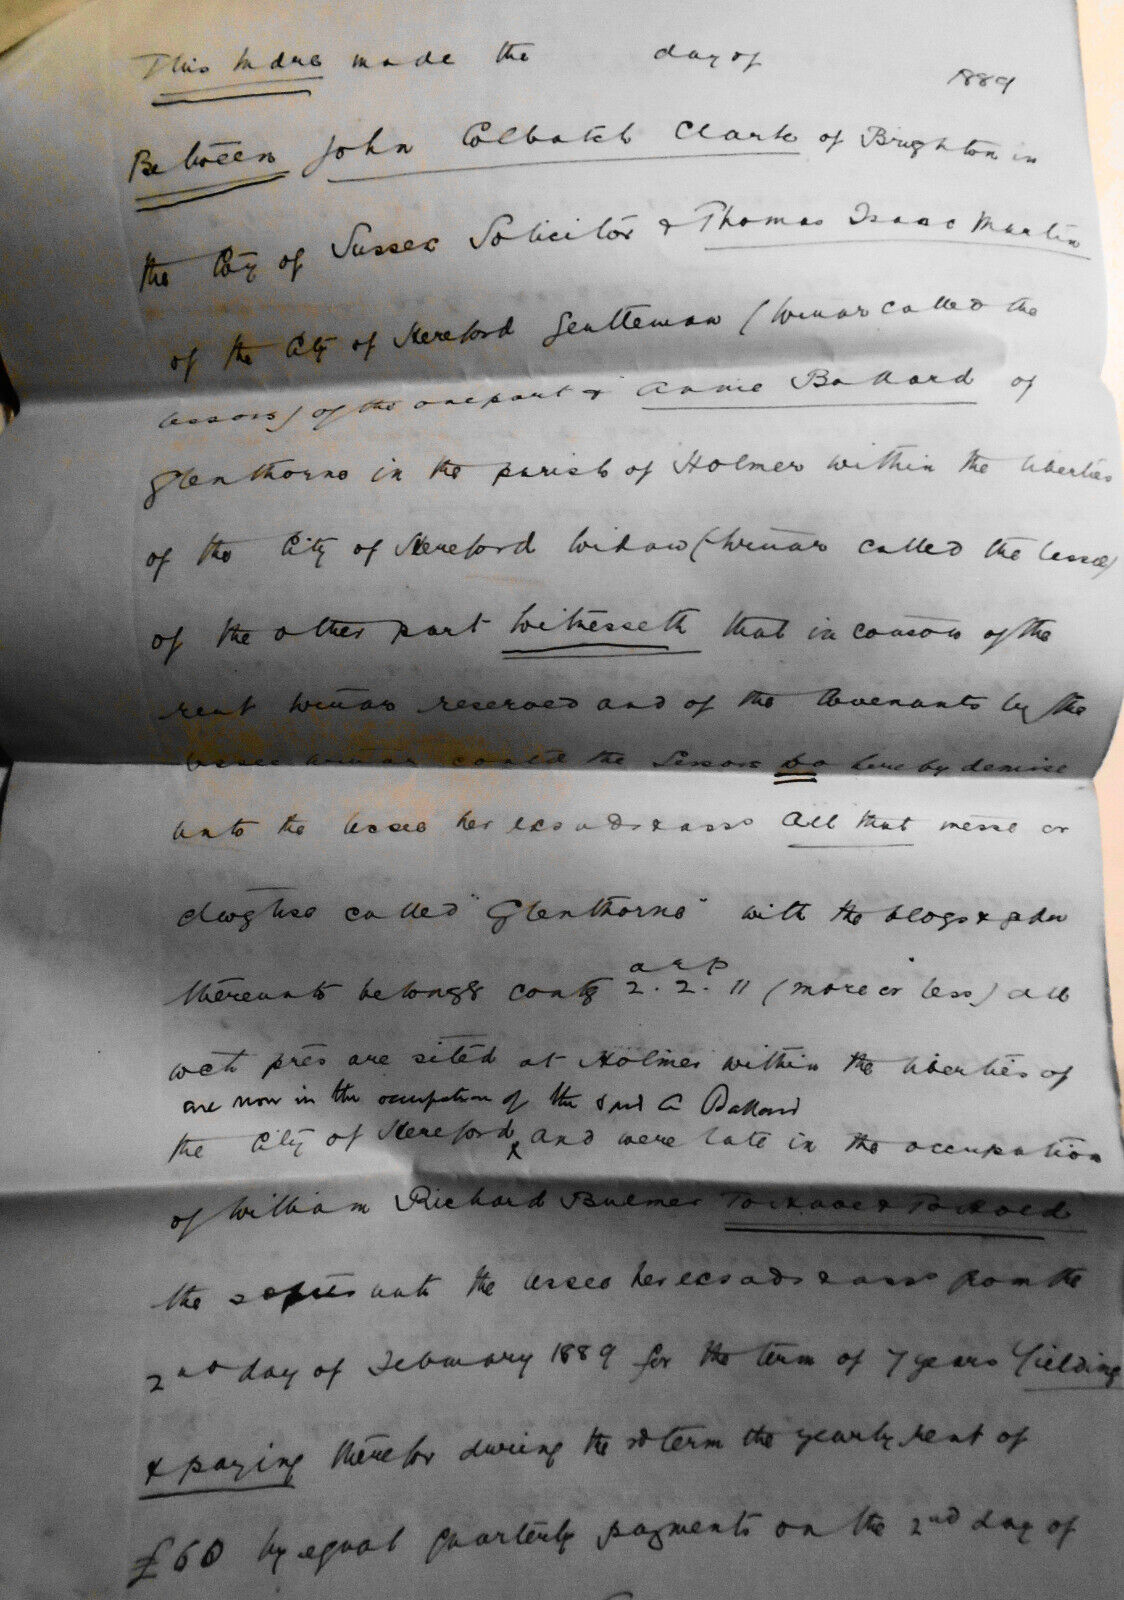 This Indre made the day of 1889
Between John Colbatch Clark of Brighton in
the Coy of Sussex Solicitor & Thomas Isaac Martin
of the City of Hereford Gentleman (hrinar called the
lessors) of the one part & Annie Ballard of
Glenthorne in the parish of Holmer within the liberties
of the City of Hereford Widow (hrinar called the lessee)
of the other part Witnesseth that in conson of the
rent hrinar reserved and of the Covenants by the
lessee hrinar contd the Lessors Do hereby demise
unto the lessee her exs ads & asss All that messe or
dwghse called "Glenthorne" with the blogs & gdn
thereunto belongg contg 2a. 2r. 11p (more or less) all
wch pres are sited at Holmer within the liberties of
are now in the occupation of the said A Ballard
the City of Hereford x and were late in the occupation
of William Richard Bulmer To Have & To Hold
the sd pres unto the lessee her exs ads & asss from the
2nd day of February 1889 for the term of 7 years Yielding
& paying therefor during the sd term the yearly rent of
£60 by equal quarterly payments on the 2nd day of